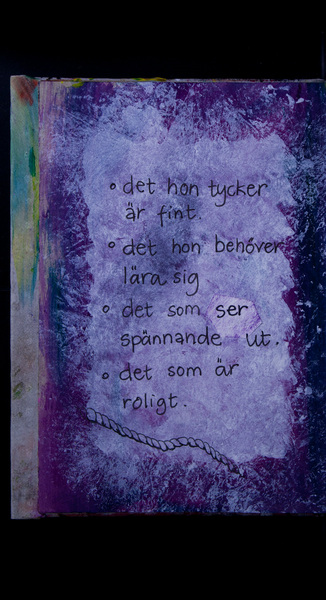 • det hon tycker
är fint.
• det hon behöver
lära sig
• det som ser
spännande ut.
• det som är
roligt.